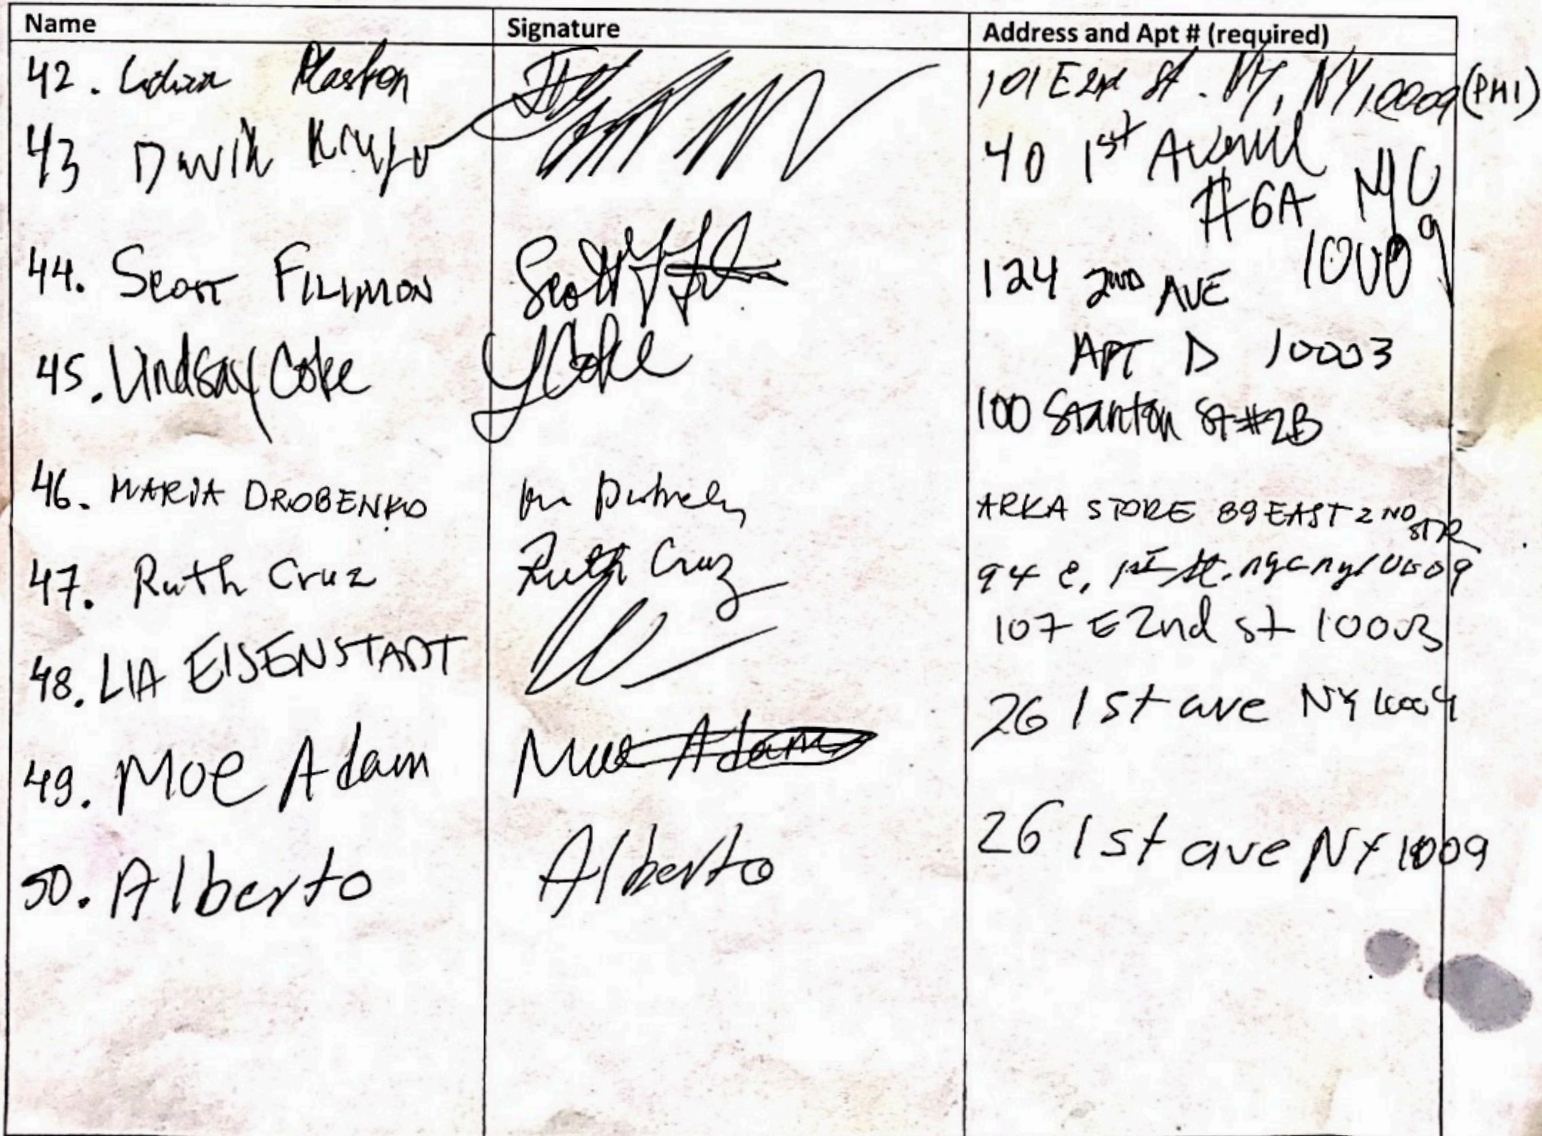 Name Signature Address and Apt # (required)
42. 101 E 2nd St. NY, NY 10009 (PH1)
43 40 1st Avenue
#6A NYC
10009
44. Scott FILIMON Scott 124 2ND AVE
APT D 10003
45. Lindsay Coke LCoke
100 Stanton St #2B
46. MARIA DROBENKO ARKA STORE 89 EAST 2ND
STR
47. Ruth Cruz Ruth Cruz 94 e, 1st St. nyc ny 10009
107 E 2nd st 10003
48. LIA EISENSTADT
26 1st ave NY
49. Moe Adam Moe Adam
26 1st ave NY 1009
50. Alberto Alberto